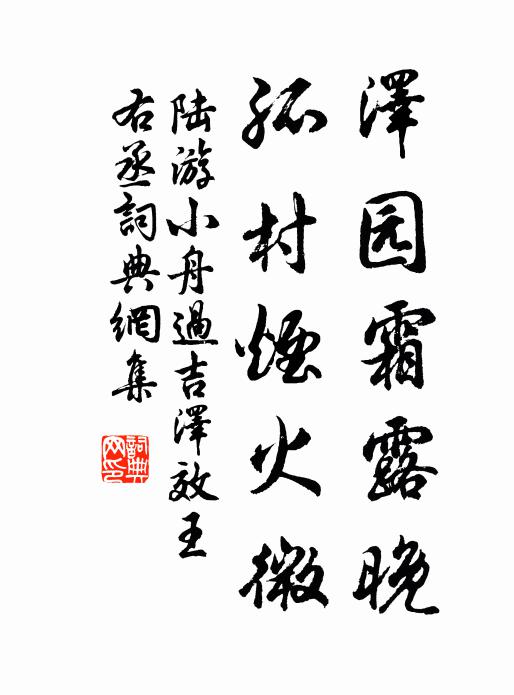 澤园霜露晚
孤村煙火微
陆游小舟過吉澤效王
右丞詞典網集
詞典网印